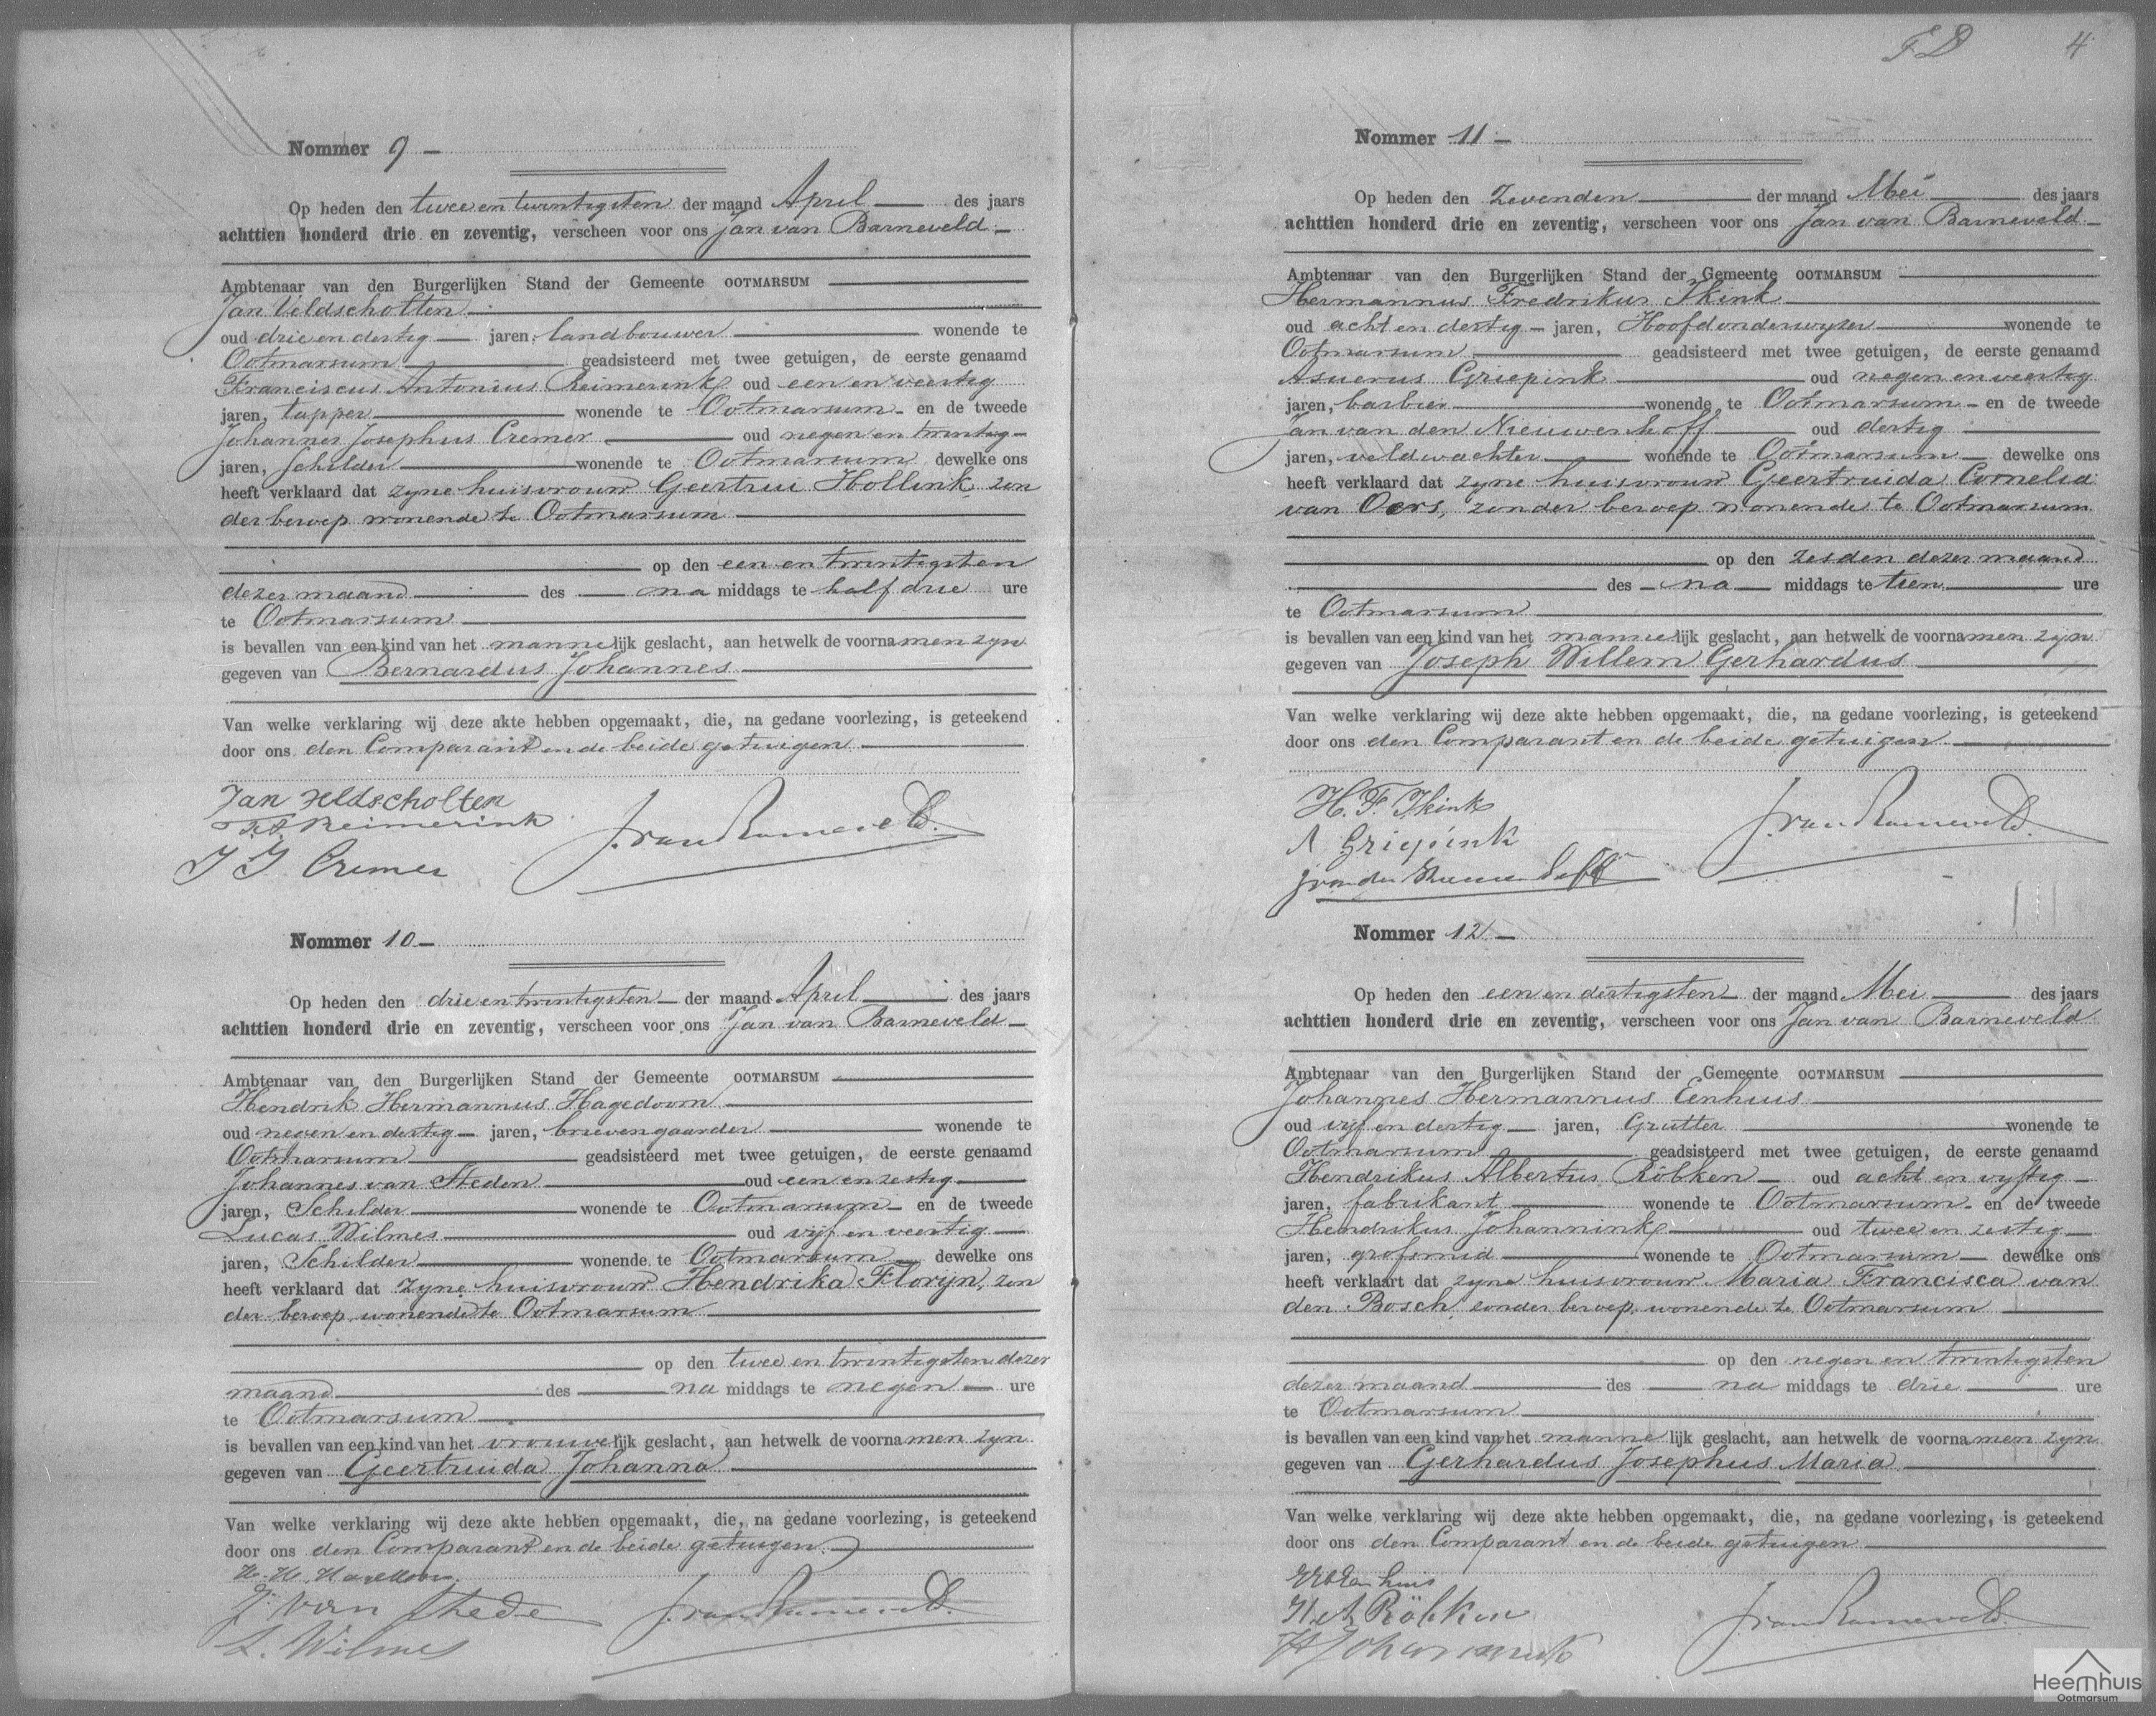 Nommer 9
Op heden den twee en twintigsten der maand April des jaars
achttien honderd drie en zeventig, verscheen voor ons Jan van Barneveld
Ambtenaar van den Burgerlijken Stand der Gemeente OOTMARSUM
Jan Veldscholten
oud drie en dertig jaren, landbouwer wonende te
Ootmarsum geadsisteerd met twee getuigen, de eerste genaamd
Franciscus Antonius Reimerink oud een en veertig
jaren, tapper wonende te Ootmarsum en de tweede
Johannes Josephus Cremer oud negen en twintig
jaren, Schilder wonende te Ootmarsum dewelke ons
heeft verklaard dat zyne huisvrouw Geertrui Hollink, zon
der beroep wonende te Ootmarsum
op den een en twintigsten
dezer maand des na middags te half drie ure
te Ootmarsum
is bevallen van een kind van het mannelijk geslacht, aan hetwelk de voornamen zyn
gegeven van Bernardus Johannes
Van welke verklaring wij deze akte hebben opgemaakt, die, na gedane voorlezing, is geteekend
door ons den Comparant en de beide getuigen.
Jan Veldscholten
F.A. Reimerink
J J Cremer
J. van Barneveld.
Nommer 10
Op heden den drie en twintigsten der maand April des jaars
achttien honderd drie en zeventig, verscheen voor ons Jan van Barneveld
Ambtenaar van den Burgerlijken Stand der Gemeente OOTMARSUM
Hendrik Hermannus Hagedoorn
oud negen en dertig jaren, brievengaarder wonende te
Ootmarsum geadsisteerd met twee getuigen, de eerste genaamd
Johannes van Steden oud een en zestig
jaren, Schilder wonende te Ootmarsum en de tweede
Lucas Wilmes oud vijf en veertig
jaren, Schilder wonende te Ootmarsum dewelke ons
heeft verklaard dat zyne huisvrouw Hendrika Floryn, zon
der beroep, wonende te Ootmarsum
op den twee en twintigsten dezer
maand des na middags te negen ure
te Ootmarsum
is bevallen van een kind van het vrouwelijk geslacht, aan hetwelk de voornamen zyn
gegeven van Geertruida Johanna
Van welke verklaring wij deze akte hebben opgemaakt, die, na gedane voorlezing, is geteekend
door ons den Comparant en de beide getuigen.
H. H. Hagedoorn.
J. van Stede
L. Wilmes
J. van Barneveld.
4
Nommer 11
Op heden den zevenden der maand Mei des jaars
achttien honderd drie en zeventig, verscheen voor ons Jan van Barneveld
Ambtenaar van den Burgerlijken Stand der Gemeente OOTMARSUM
Hermannus Fredrikus Ikink
oud acht en dertig jaren, Hoofdonderwyzer wonende te
Ootmarsum geadsisteerd met twee getuigen, de eerste genaamd
Asuerus Griepink oud negen en veertig
jaren, barbier wonende te Ootmarsum en de tweede
Jan van den Nieuwenhoff oud dertig
jaren, veldwachter wonende te Ootmarsum dewelke ons
heeft verklaard dat zyne huisvrouw Geertruida Cornelia
van Oers, zonder beroep wonende te Ootmarsum
op den zesden dezer maand
des na middags te tien ure
te Ootmarsum
is bevallen van een kind van het mannelijk geslacht, aan hetwelk de voornamen zijn
gegeven van Joseph Willem Gerhardus
Van welke verklaring wij deze akte hebben opgemaakt, die, na gedane voorlezing, is geteekend
door ons den Comparant en de beide getuigen.
H. F. Ikink
A Griepink
J. van Barneveld.
Nommer 12
Op heden den een en dertigsten der maand Mei des jaars
achttien honderd drie en zeventig, verscheen voor ons Jan van Barneveld
Ambtenaar van den Burgerlijken Stand der Gemeente OOTMARSUM
Johannes Hermannus Eenhuis
oud vyf en dertig jaren, Grutter wonende te
Ootmarsum geadsisteerd met twee getuigen, de eerste genaamd
Hendrikus Albertus Röbken oud acht en vyftig
jaren, fabrikant wonende te Ootmarsum en de tweede
Hendrikus Johannink oud twee en zestig
jaren, grofsmid wonende te Ootmarsum dewelke ons
heeft verklaart dat zyne huisvrouw Maria Francisca van
den Bosch, zonder beroep, wonende te Ootmarsum
op den negen en twintigsten
dezer maand des na middags te drie ure
te Ootmarsum
is bevallen van een kind van het mannelijk geslacht, aan hetwelk de voornamen zyn
gegeven van Gerhardus Josephus Maria
Van welke verklaring wij deze akte hebben opgemaakt, die, na gedane voorlezing, is geteekend
door ons den Comparant en de beide getuigen
H A Röbken
H Johannink
J. van Barneveld.
Heemhuis
Ootmarsum